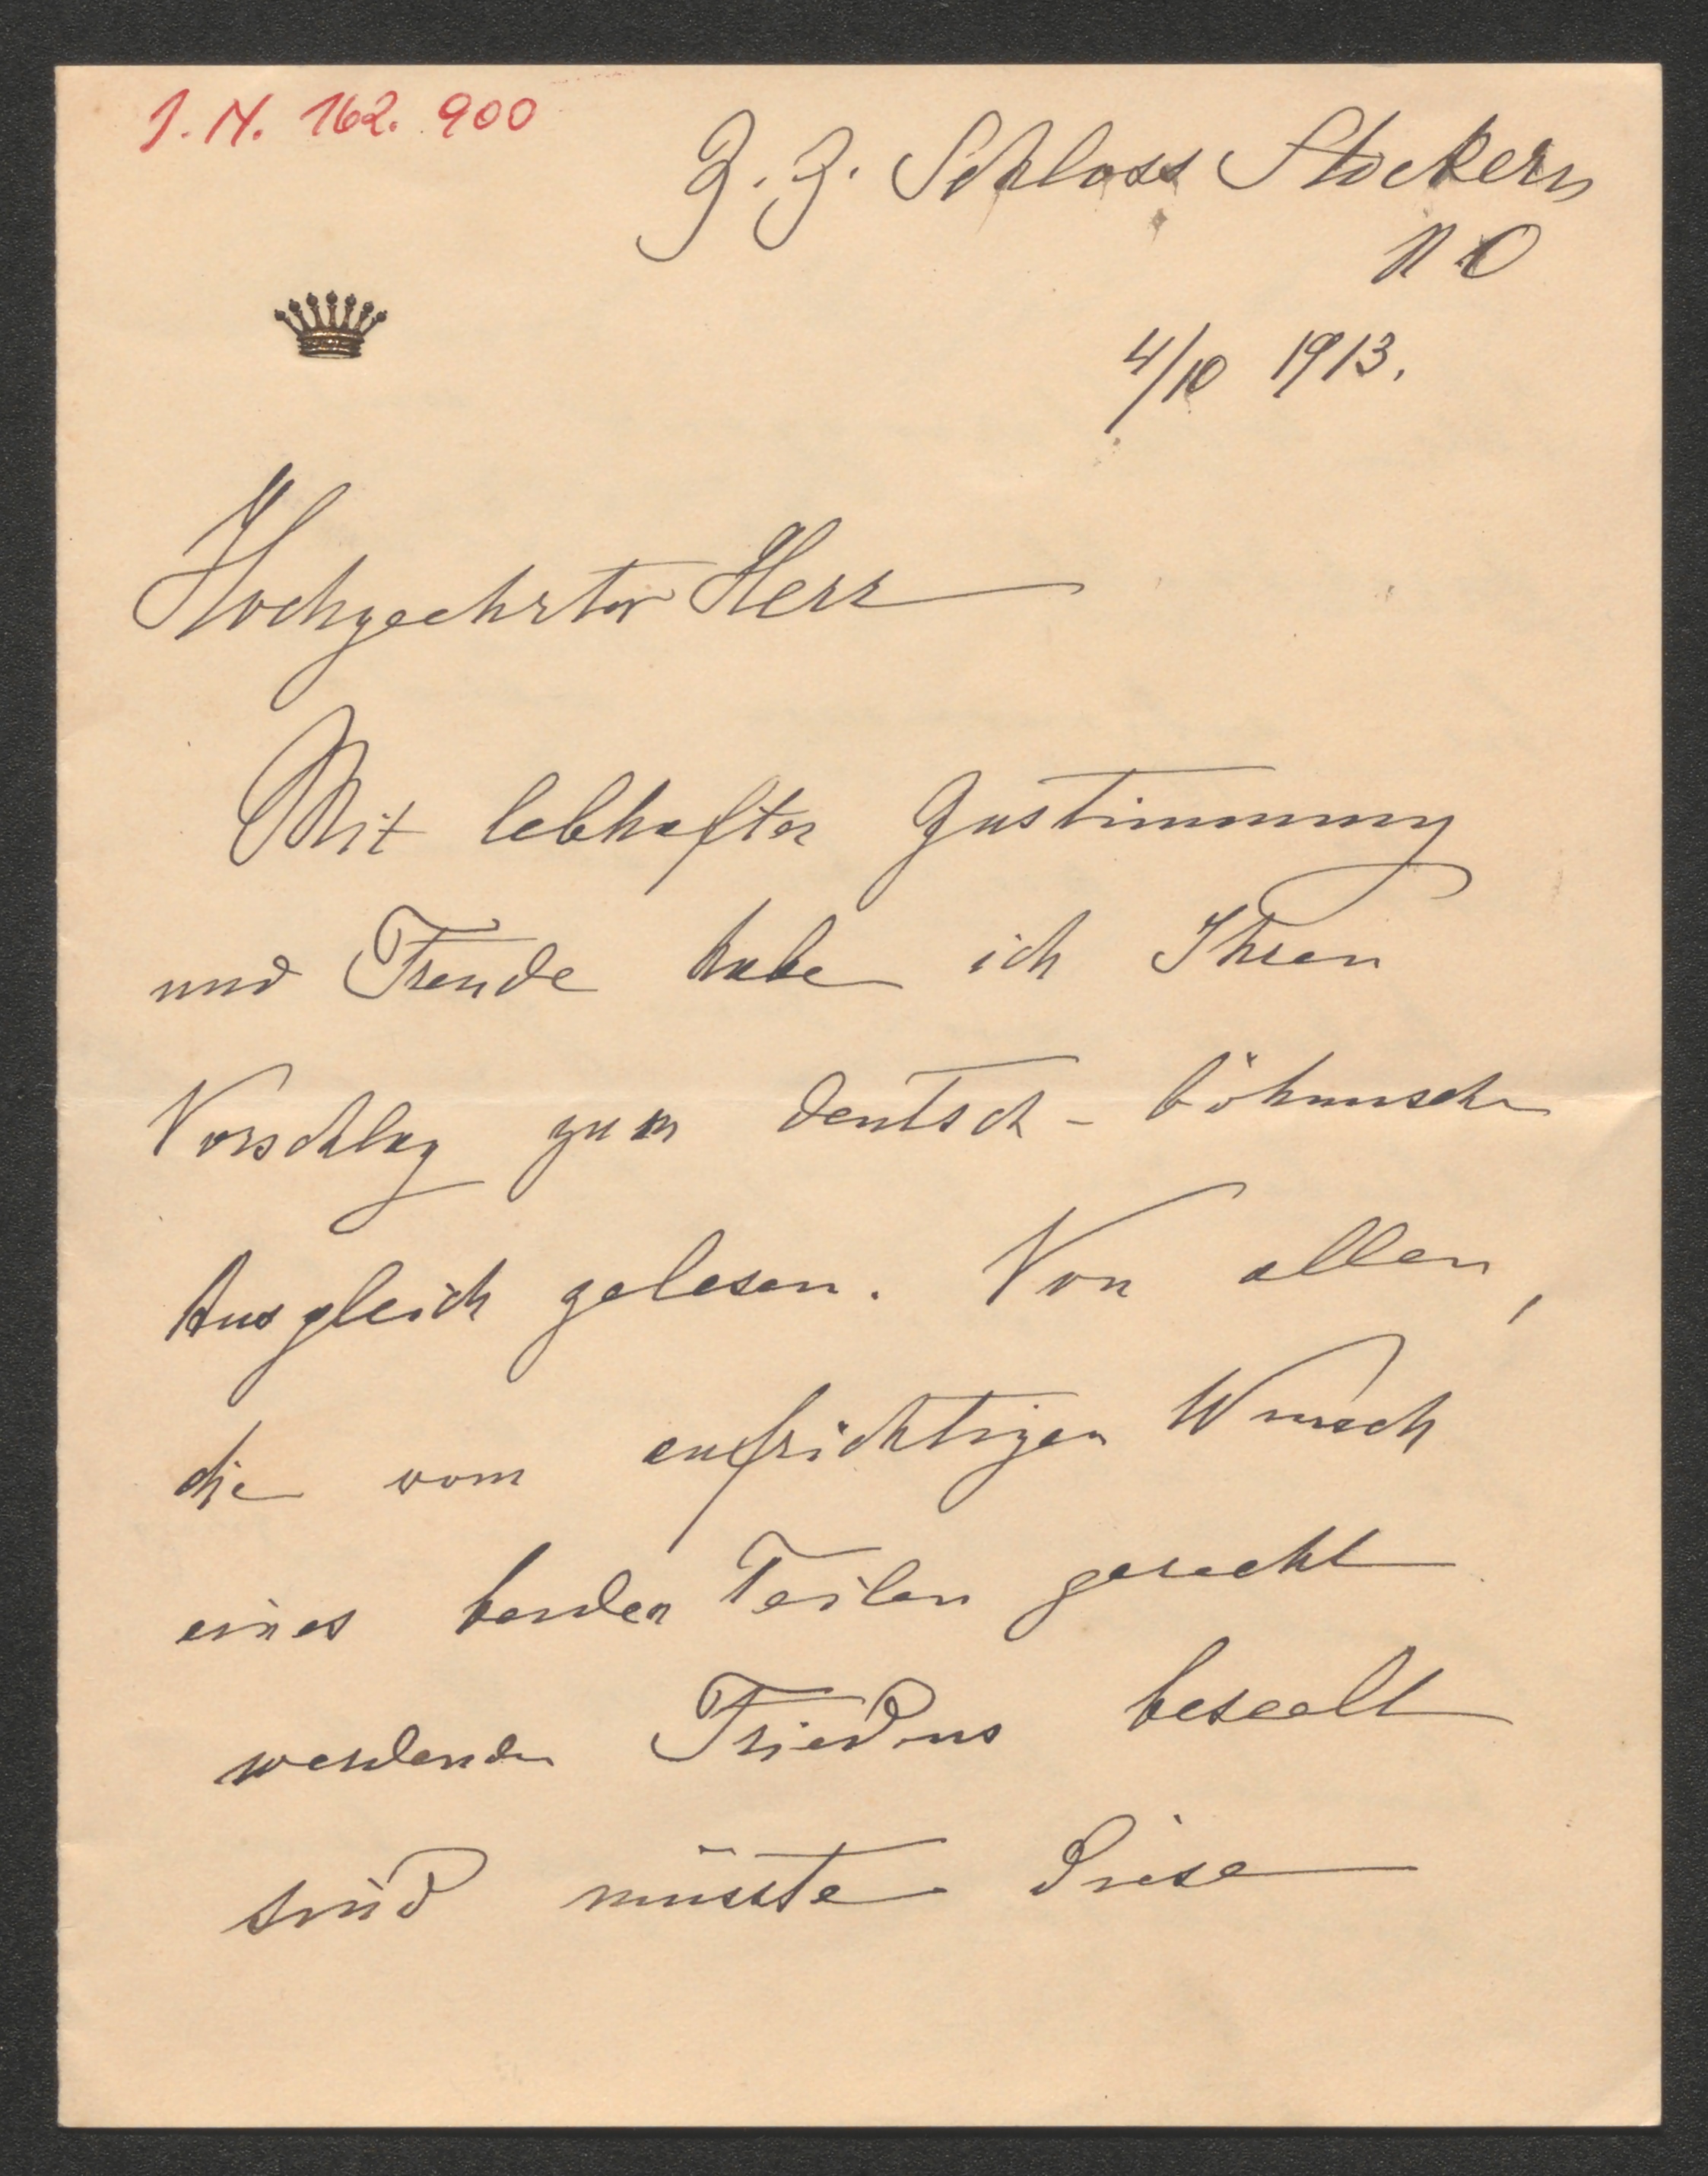 J. N. 162. 900
Z. Z. Schloss Stockern
N. O
4/10 1913.
Hochgeehrter Herr
Mit lebhafter Zustimmung
und Freude habe ich Ihren
Vorschlag zum deutsch-böhmischen
Ausgleich gelesen. Von allen,
die vom aufrichtigen Wunsch
eines beiden Teilen gerecht
werdenden Friedens beseelt
sind müsste diese